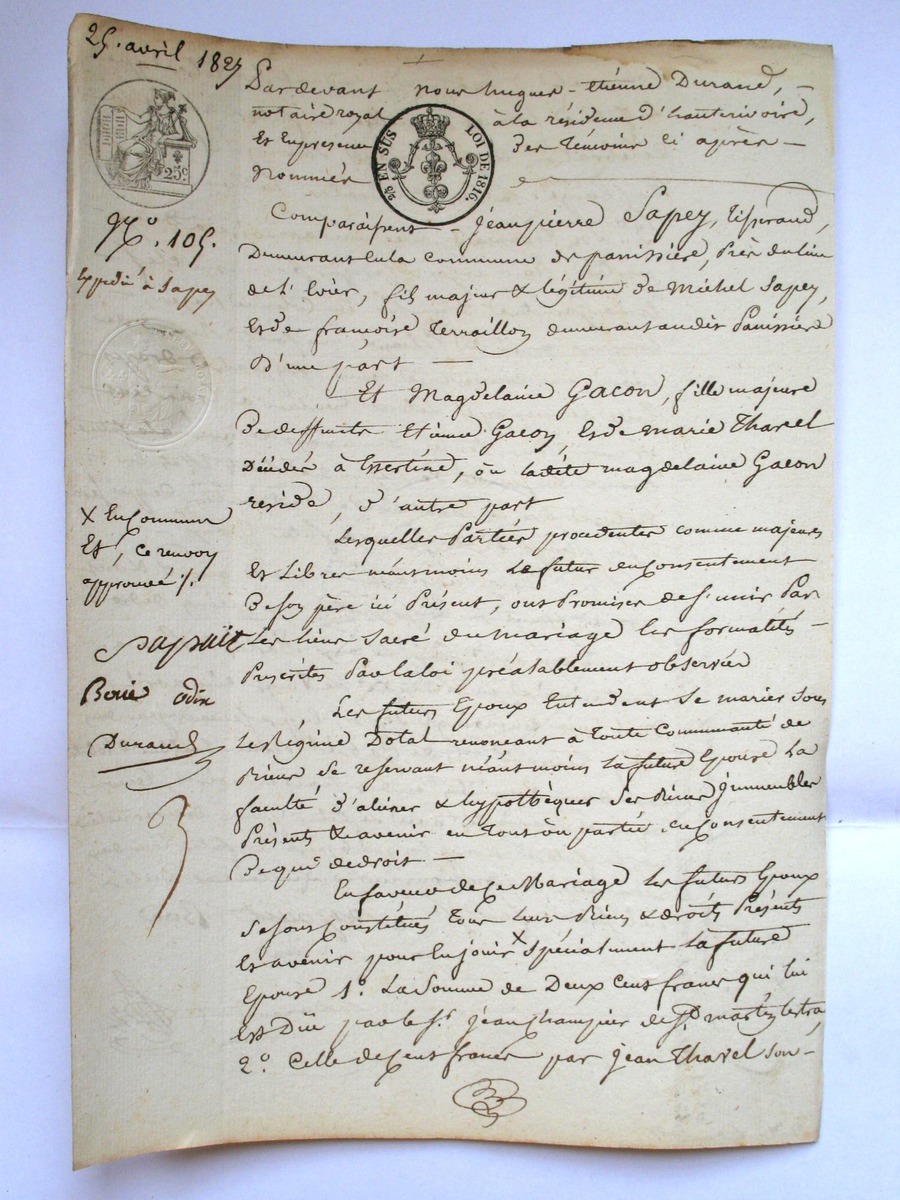 25. avril 1827
Pardevant nous hugues-étienne Durand,
notaire royal à la résidence d'hauterivoire,
Et En presence des témoins ci après
Nommés
25c.
2/5 EN SUS LOI DE 1816.
N.° 105.
Expédié à Sapey
Comparaissent Jean pierre Sapey, tisserand,
Demeurant En la commune de panissière, Près du lieu
de l'oier, fils majeur & légitime de Michel Sapey,
Et de françoise Terraillon demeurant audit Panissière
D'une part
Et Magdelaine Gacon, fille majeure
De deffunts Etienne Gacon, Et de Marie Tharel
Décédés à Essertine, où ladite magdelaine Gacon
reside, d'autre part
Lesquelles Parties procedentes comme majeures
Et Libres néantmoins Le futur du Consentement
De son père ici Présent, ont Promises de s'unir Par
Les liens Sacré du Mariage les formalités
Préscrites Par la loi préalablement observées
Les futurs Epoux Entendent se marier sous
Le Régime Dotal renonçant à Toute Communauté de
Biens se reservant néantmoins la future Epouse La
faculté d'aliéner & hypothèquer Ses Biens Immeubles
Présents & avenir en tout ou partie, du Consentement
De qui de droit
En faveur de Ce Mariage Les futurs Epoux
Se sont Constitués Tous leurs Biens & droits Présents
Et avenir pour En jouir X Spécialement La future
Epouse 1.° La Somme de Deux Cent francs qui lui
Est Düe par le S.r Jean champier de S.t martin lestra,
2.° Celle de Cent francs par Jean Tharel son
X En Commun
Et, Ce renvoy
approuvé ./.
Odin
Durand